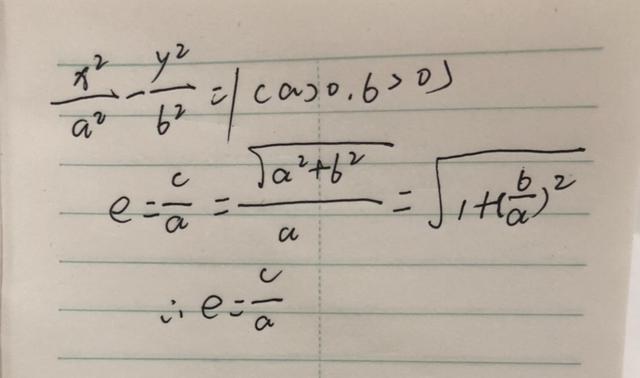 x²/a² - y²/b² = 1 (a>0, b>0)
e = c/a = √(a²+b²)/a = √(1+(b/a)²)
∴ e = c/a